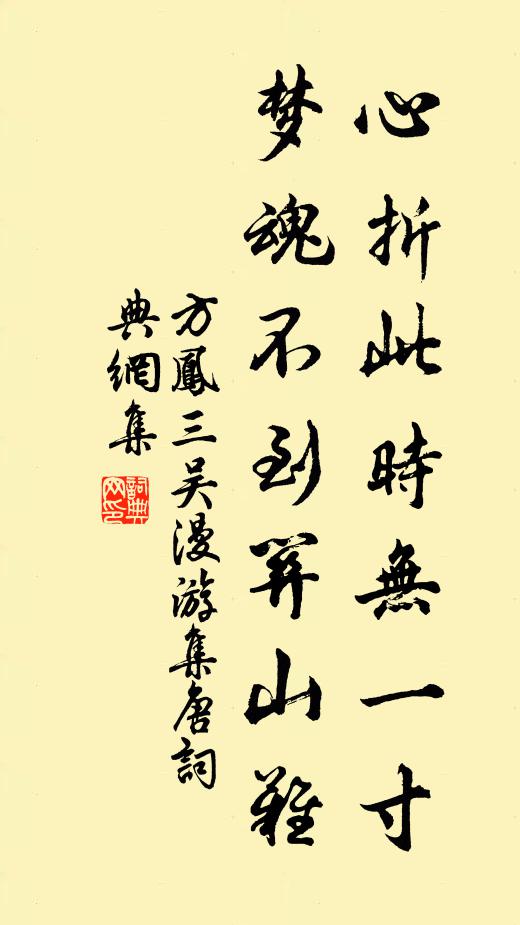 心折此時無一寸
梦魂不到關山難
方鳳三吴漫游集唐詞
典網集
詞典網印